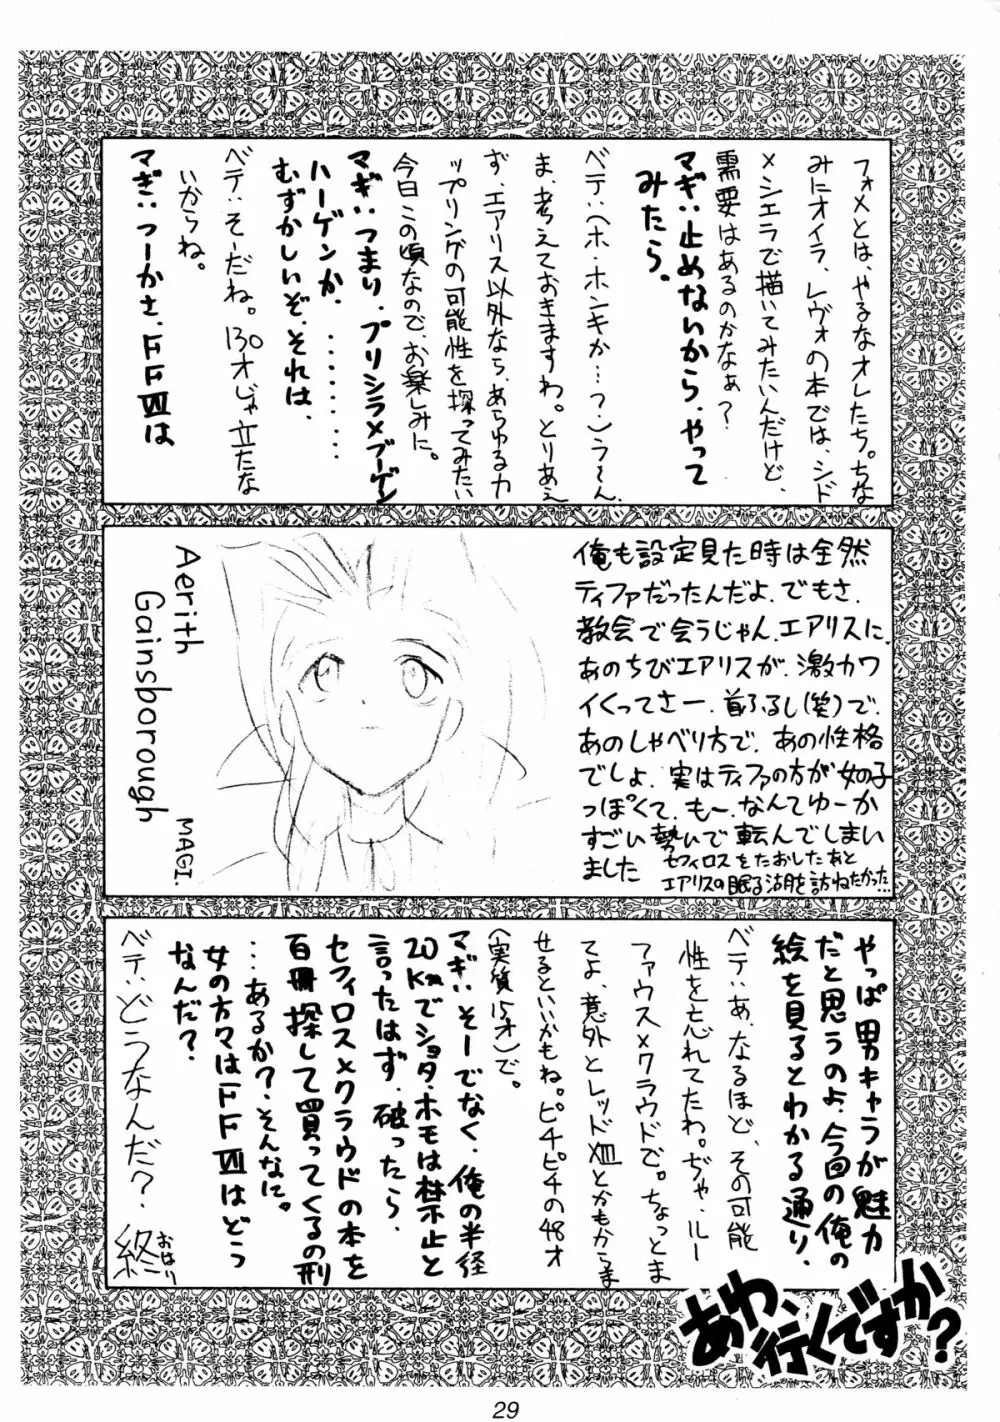 フォメとは、やるなオレたち。ちな
みにオイラ、レヴォの本では、シド
×シエラで描いてみたいんだけど、
需要はあるのかなぁ？
マギ:止めないから、やって
みたら。
ベテ:(ホ・ホンキか…？)う〜ん、
ま、考えておきますわ。とりあえ
ず、エアリス以外なら、あらゆるカ
ップリングの可能性を探ってみたい
今日この頃なので、お楽しみに。
マギ:つまり、プリシラ×ブーゲン
ハーゲンか………
むずかしいぞ、それは、
ベテ:そーだね。130才じゃ立たな
いからね。
マギ:つーかさ、FFⅦは
Aerith
Gainsborough
MAGI.
俺も設定見た時は全然
ティファだったんだよ、でもさ、
教会で会うじゃん、エアリスに、
あのちびエアリスが、激カワ
イくってさー、首ふるし(笑)で、
あのしゃべり方で、あの性格
でしょ、実はティファの方が女の子
っぽくて、もー、なんてゆーか
すごい勢いで転んでしまい
ました
セフィロスをたおしたあと
エアリスの眠る湖を訪ねたかった…
やっぱ男キャラが魅力
だと思うのよ、今回の俺の
絵を見るとわかる通り、
ベテ:あ、なるほど、その可能
性を忘れてたわ。ぢゃ、ルー
ファウス×クラウドで。ちなっとま
てよ、意外とレッドⅩⅢとかもからま
せるといいかもね。ピチピチの48才
(実質15才)で。
マギ:そーでなく、俺の半径
20Kmでショタ・ホモは禁止と
言ったはず、破ったら、
セフィロス×クラウドの本を
百冊探して買ってくるの刑
…あるか？、そんなに。
女の方々はFFⅦはどう
なんだ？
ベテ:どうなんだ？
終
おはり
あわ、行くですか？
29